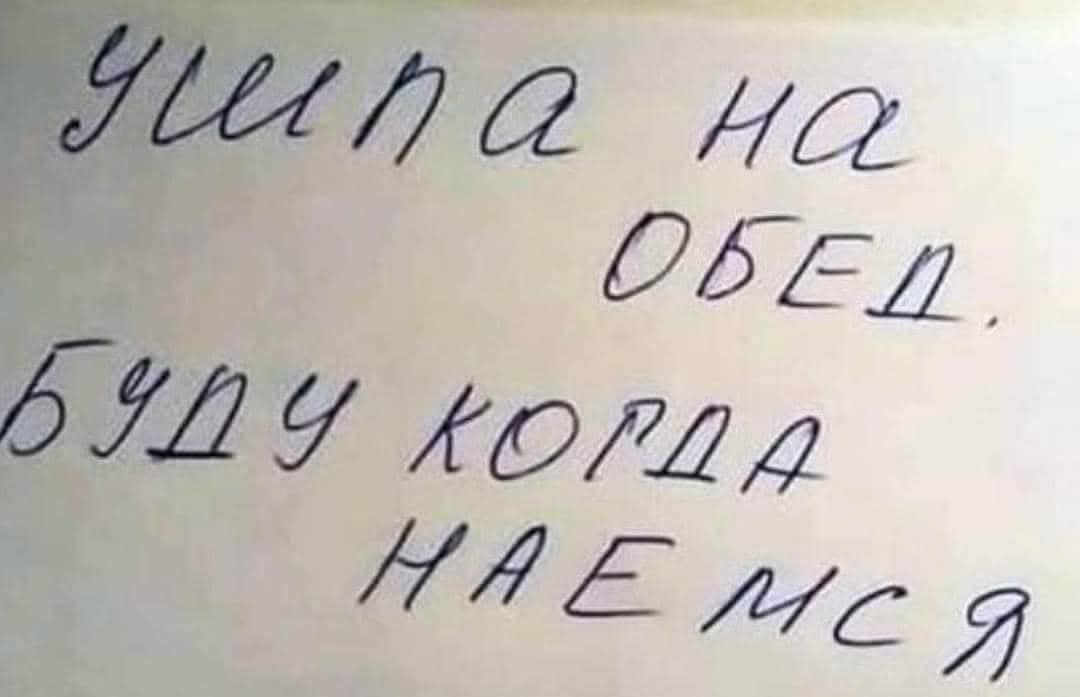 Ушла на
ОБЕД.
БУДУ КОГДА
НАЕМСЯ